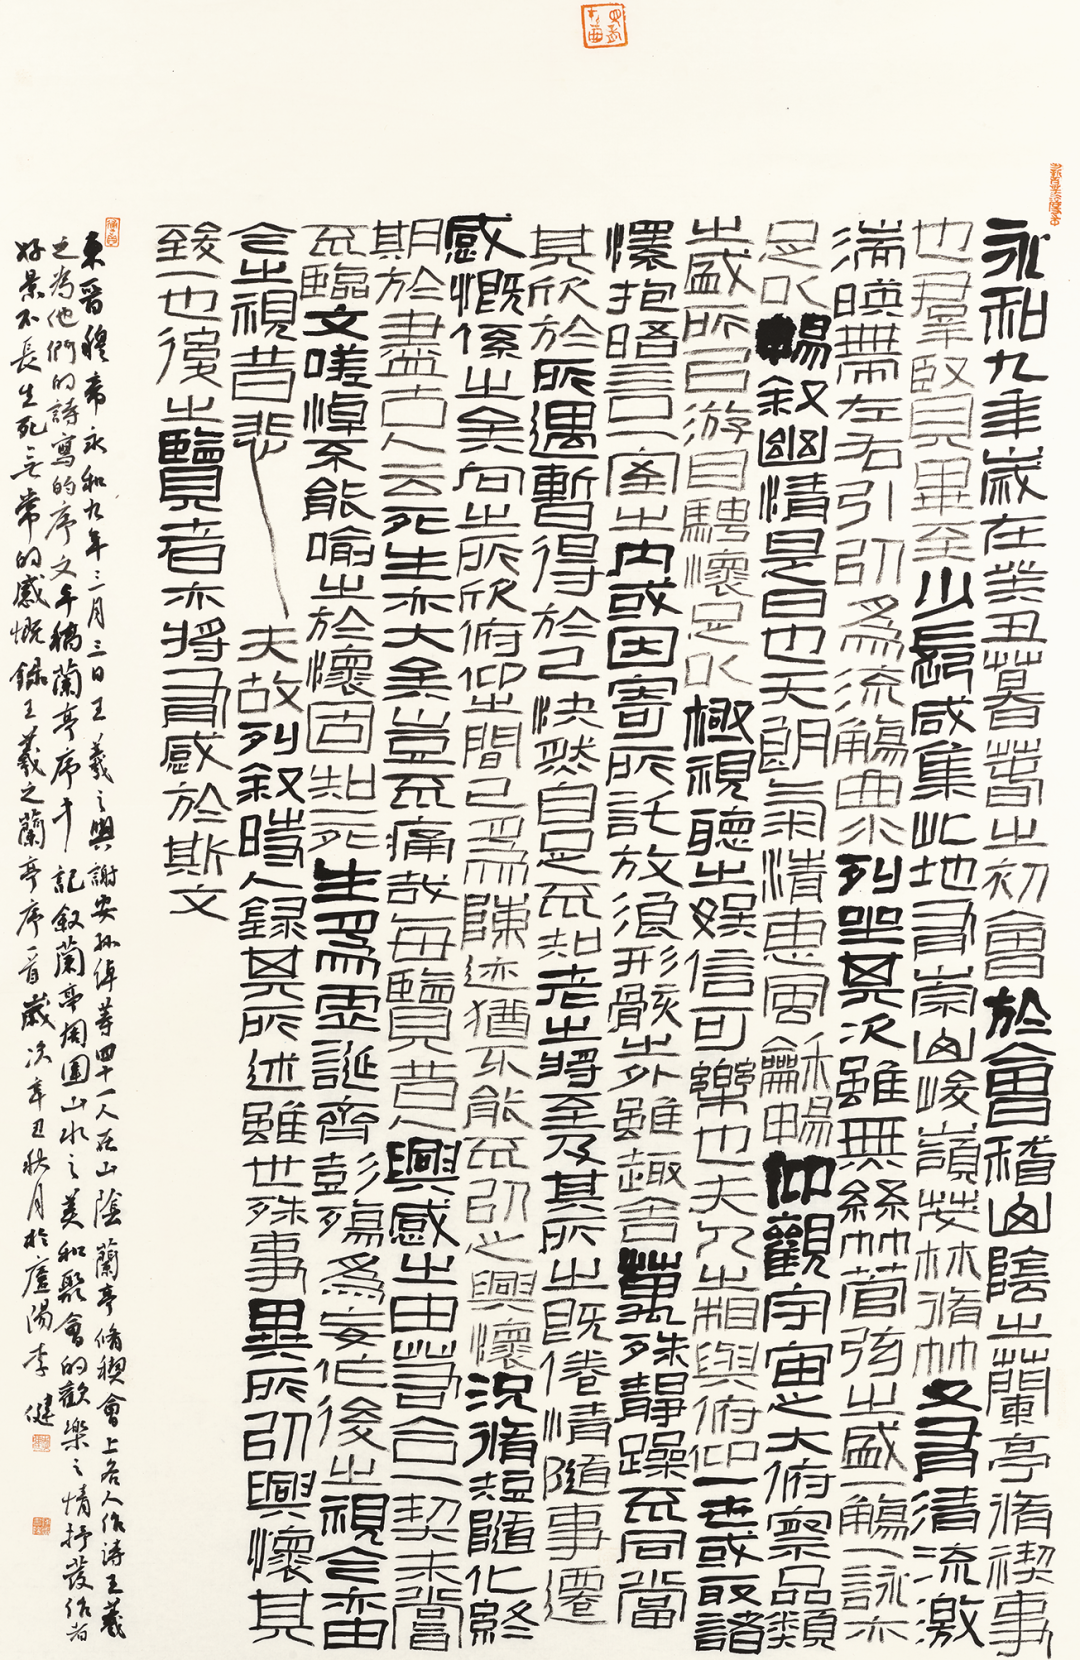 永和九年歲在癸丑暮春之初會於會稽山陰之蘭亭脩禊事
也羣賢畢至少長咸集此地有崇山峻嶺茂林脩竹又有清流激
湍暎帶左右引以為流觴曲水列坐其次雖無絲竹管弦之盛一觴一詠亦
足以暢叙幽情是日也天朗氣清惠風龢暢仰觀宇宙之大俯察品類
之盛所以游目騁懷足以極視聽之娛信可樂也夫人之相與俯仰一世或取諸
懷抱晤言一室之內或因寄所託放浪形骸之外雖趣舍萬殊靜躁不同當
其欣於所遇暫得於己怏然自足不知老之將至及其所之既倦情隨事遷
感慨係之矣向之所欣俯仰之間已為陳迹猶不能不以之興懷況脩短隨化終
期於盡古人云死生亦大矣豈不痛哉每覽昔人興感之由若合一契未嘗
不臨文嗟悼不能喻之於懷固知死生為虛誕齊彭殤為妄作後之視今亦由
今之視昔悲夫故列叙時人錄其所述雖世殊事異所以興懷其
致一也後之覽者亦將有感於斯文
東晉穆帝永和九年三月三日王羲之與謝安孫綽等四十一人在山陰蘭亭脩禊會上各人作詩王羲
之為他們的詩寫的序文手稿蘭亭序中記敘蘭亭周圍山水之美和聚會的歡樂之情抒發作者
好景不長生死無常的感慨錄王羲之蘭亭序一首歲次辛丑秋月於廬陽李健